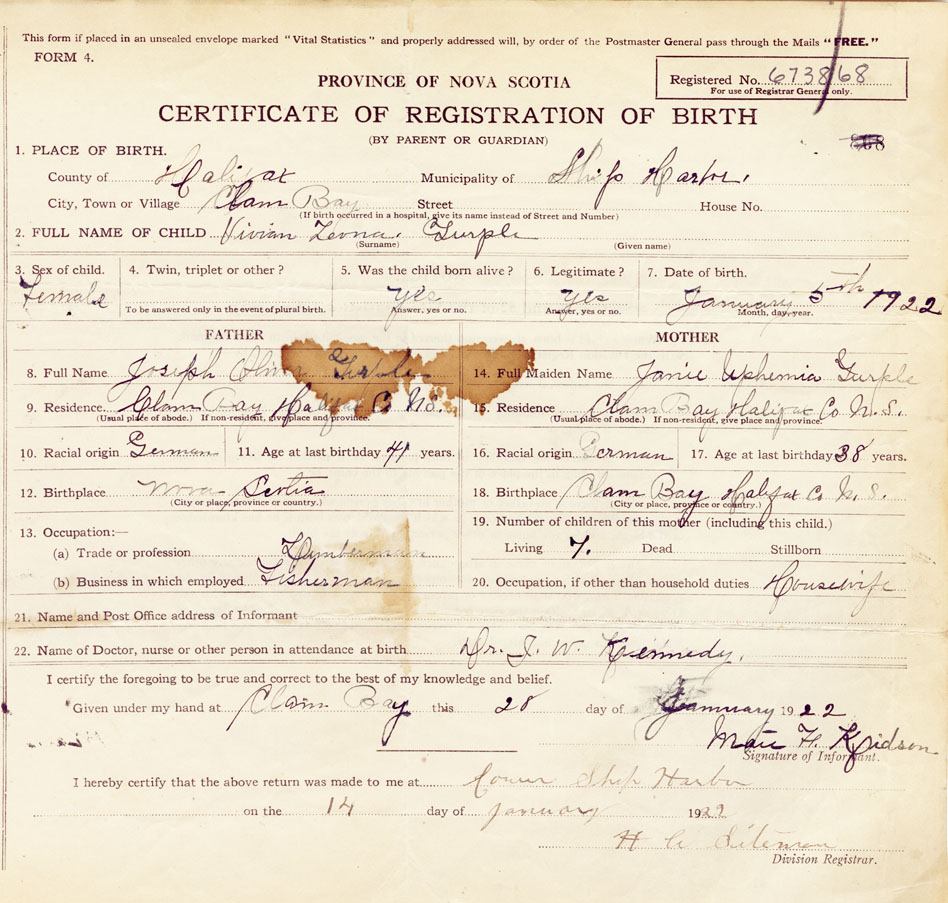 This form if placed in an unsealed envelope marked "Vital Statistics" and properly addressed will, by order of the Postmaster General pass through the Mails "FREE."
FORM 4.
PROVINCE OF NOVA SCOTIA
Registered No. 673868
For use of Registrar General only.
CERTIFICATE OF REGISTRATION OF BIRTH
(BY PARENT OR GUARDIAN)
868
1. PLACE OF BIRTH.
County of Halifax Municipality of Ship Harbor.
City, Town or Village Clam Bay Street House No.
(If birth occurred in a hospital, give its name instead of Street and Number)
2. FULL NAME OF CHILD Vivian Leona. Turple
(Surname) (Given name)
3. Sex of child. 4. Twin, triplet or other? 5. Was the child born alive? 6. Legitimate? 7. Date of birth.
Female yes yes January 5th 1922
To be answered only in the event of plural birth. Answer, yes or no. Answer, yes or no. Month, day, year.
FATHER MOTHER
8. Full Name Joseph Turple 14. Full Maiden Name Janie Uphemia Turple
9. Residence Clam Bay Halifax Co No. 15. Residence Clam Bay Halifax Co N. S.
(Usual place of abode.) If non-resident, give place and province. (Usual place of abode.) If non-resident, give place and province.
10. Racial origin German 11. Age at last birthday 41 years. 16. Racial origin German 17. Age at last birthday 38 years.
12. Birthplace Nova Scotia 18. Birthplace Clam Bay Halifax Co N. S.
(City or place, province or country.) (City or place, province or country.)
19. Number of children of this mother (including this child.)
13. Occupation:—
(a) Trade or profession Lumberman Living 7. Dead Stillborn
(b) Business in which employed Fisherman 20. Occupation, if other than household duties Housewife
21. Name and Post Office address of Informant
22. Name of Doctor, nurse or other person in attendance at birth Dr. J. W. Kennedy.
I certify the foregoing to be true and correct to the best of my knowledge and belief.
Given under my hand at Clam Bay this 28 day of January 1922
H.
Signature of Informant.
I hereby certify that the above return was made to me at Lower Ship Harbor
on the 14 day of January 1922
H Siteman
Division Registrar.